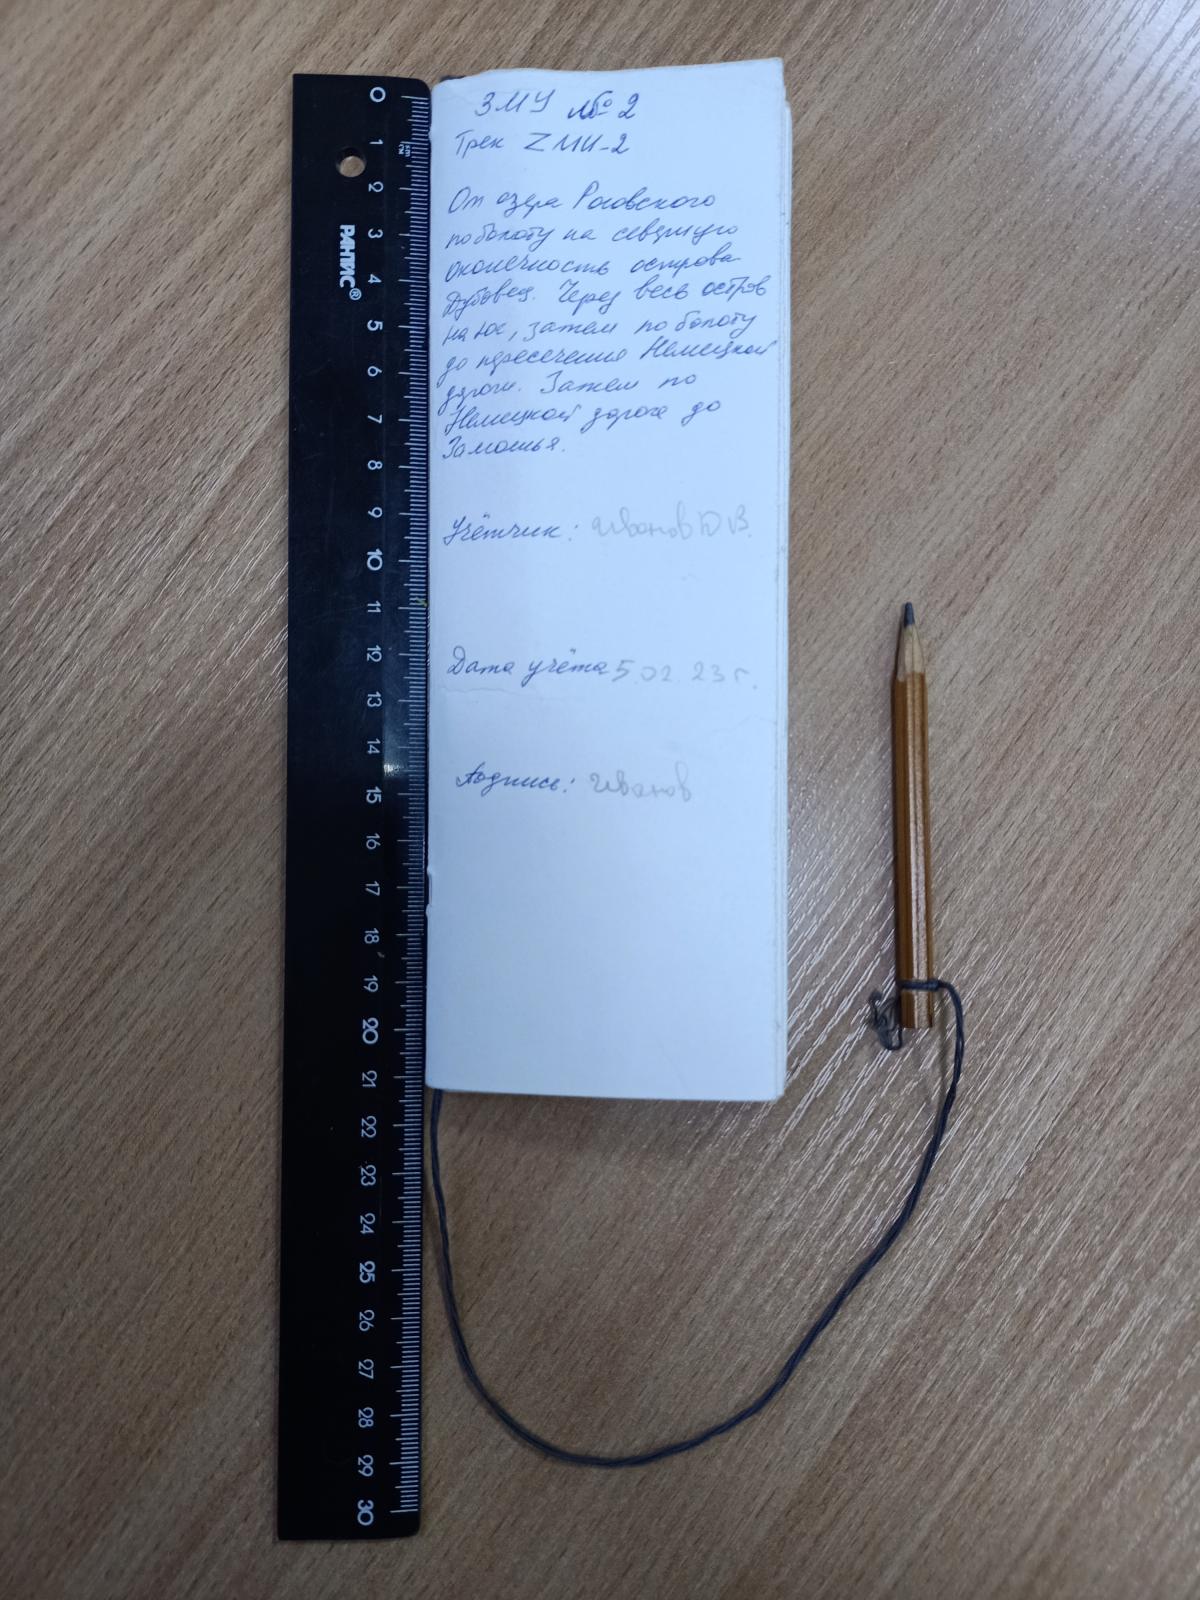 ЗМУ №2
Трек ZMU-2
От озера Роговского
по болоту на северную
оконечность острова
Дубовец. Через весь остров
на юг, затем по болоту
до пересечения Немецкой
дороги. Затем по
Немецкой дороге до
Замошья.
Учётчик: Иванов Ю В.
Дата учёта 5.02.23 г.
Подпись: Иванов
РАНТИС®
0 1 2 3 4 5 6 7 8 9 10 11 12 13 14 15 16 17 18 19 20 21 22 23 24 25 26 27 28 29 30